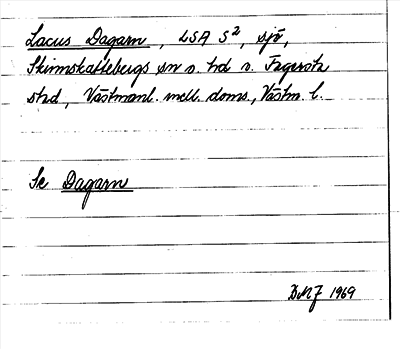 Lacus Dagarn, LSA S², sjö,
Skinnskattebergs sn o. hd o. Fagersta
stad, Västmanl. mell. doms., Västm. l.
Se Dagarn
DMJ 1969